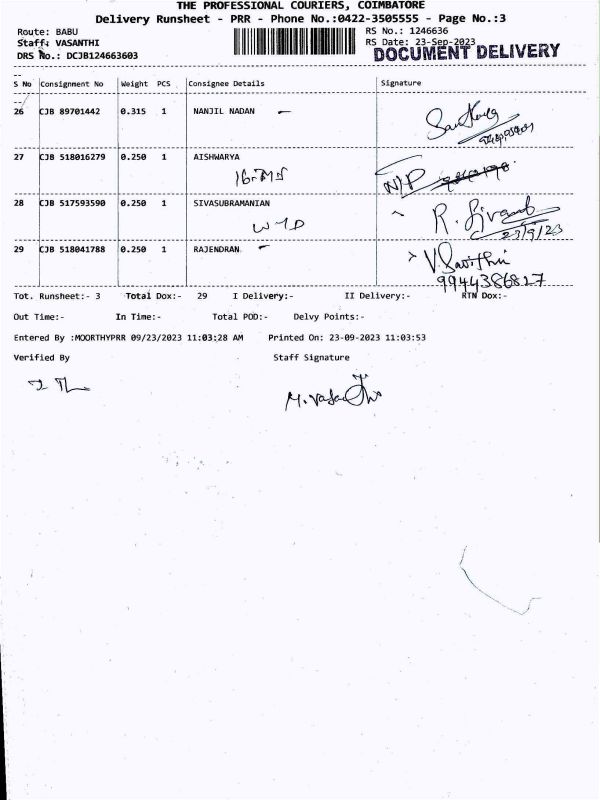 THE PROFESSIONAL COURIERS, COIMBATORE
Delivery Runsheet - PRR - Phone No.:0422-3505555 - Page No.:3
Route: BABU RS No.: 1246636
Staff: VASANTHI RS Date: 23-Sep-2023
DRS No.: DCJB124663603 DOCUMENT DELIVERY
S No Consignment No Weight PCS Consignee Details Signature
26 CJB 89701442 0.315 1 NANJIL NADAN
27 CJB 518016279 0.250 1 AISHWARYA
N/P
28 CJB 517593590 0.250 1 SIVASUBRAMANIAN
R. Sivasub
23/9/23
29 CJB 518041788 0.250 1 RAJENDRAN
V. Savithri
9944386827
Tot. Runsheet:- 3 Total Dox:- 29 I Delivery:- II Delivery:- RTN Dox:-
Out Time:- In Time:- Total POD:- Delvy Points:-
Entered By :MOORTHYPRR 09/23/2023 11:03:28 AM Printed On: 23-09-2023 11:03:53
Verified By Staff Signature
M. Vasanthi